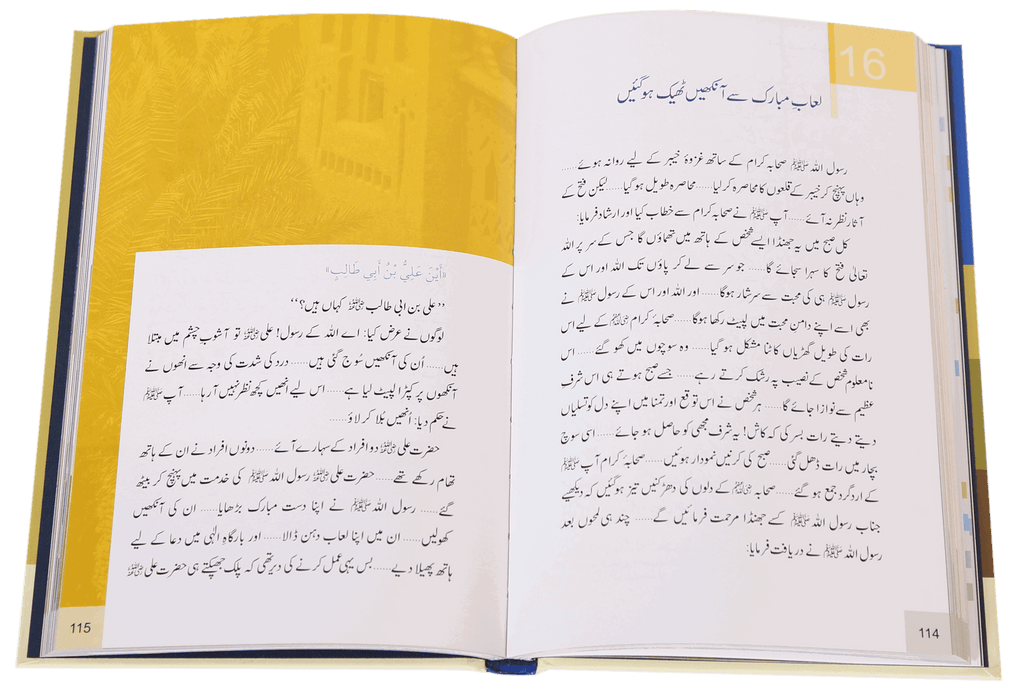 16
لعاب مبارک سے آنکھیں ٹھیک ہوگئیں
رسول اللہ ﷺ صحابہ کرام کے ساتھ غزوۂ خیبر کے لیے روانہ ہوئے......
وہاں پہنچ کر خیبر کے قلعوں کا محاصرہ کرلیا......محاصرہ طویل ہو گیا......لیکن فتح کے
آثار نظر نہ آئے......آپ ﷺ نے صحابہ کرام سے خطاب کیا اور ارشاد فرمایا:
کل صبح میں یہ جھنڈا ایسے شخص کے ہاتھ میں تھماؤں گا جس کے سر پر اللہ
تعالیٰ فتح کا سہرا سجائے گا...... جو سر سے لے کر پاؤں تک اللہ اور اس کے
رسول ﷺ ہی کی محبت سے سرشار ہوگا...... اور اللہ اور اس کے رسول ﷺ نے
بھی اسے اپنے دامن محبت میں لپیٹ رکھا ہوگا......صحابۂ کرام کے لیے اس
رات کی طویل گھڑیاں کاٹنا مشکل ہو گیا...... وہ سوچوں میں کھو گئے...... اس
نامعلوم شخص کے نصیب پہ رشک کرتے رہے...... جسے صبح ہوتے ہی اس شرف
عظیم سے نوازا جائے گا...... ہر شخص نے اس توقع اور تمنا میں اپنے دل کو تسلیاں
دیتے دیتے رات بسر کی کہ کاش! یہ شرف مجھی کو حاصل ہو جائے...... اسی سوچ
بچار میں رات ڈھل گئی......صبح کی کرنیں نمودار ہوئیں......صحابۂ کرام آپ ﷺ
کے اردگرد جمع ہو گئے......صحابہ کے دلوں کی دھڑکنیں تیز ہوگئیں کہ دیکھیے
جناب رسول اللہ ﷺ کسے جھنڈا مرحمت فرمائیں گے...... چند ہی لمحوں بعد
رسول اللہ ﷺ نے دریافت فرمایا:
114
«أَيْنَ عَلِيُّ بْنُ أَبِي طَالِبٍ»
’’علی بن ابی طالب رضی اللہ عنہ کہاں ہیں؟‘‘
لوگوں نے عرض کیا: اے اللہ کے رسول! علی رضی اللہ عنہ تو آشوب چشم میں مبتلا
ہیں...... اُن کی آنکھیں سُوج گئی ہیں...... درد کی شدت کی وجہ سے انھوں نے
آنکھوں پر کپڑا لپیٹ لیا ہے...... اس لیے انھیں کچھ نظر نہیں آ رہا...... آپ ﷺ
نے حکم دیا: اُنھیں بُلا کر لاؤ......
حضرت علی رضی اللہ عنہ دو افراد کے سہارے آئے......دونوں افراد نے ان کے ہاتھ
تھام رکھے تھے...... حضرت علی رضی اللہ عنہ رسول اللہ ﷺ کی خدمت میں پہنچ کر بیٹھ
گئے...... رسول اللہ ﷺ نے اپنا دست مبارک بڑھایا...... ان کی آنکھیں
کھولیں...... ان میں اپنا لعاب دہن ڈالا...... اور بارگاہِ الٰہی میں دعا کے لیے
ہاتھ پھیلا دیے......بس یہی عمل کرنے کی دیر تھی کہ پلک جھپکتے ہی حضرت علی رضی اللہ عنہ
115